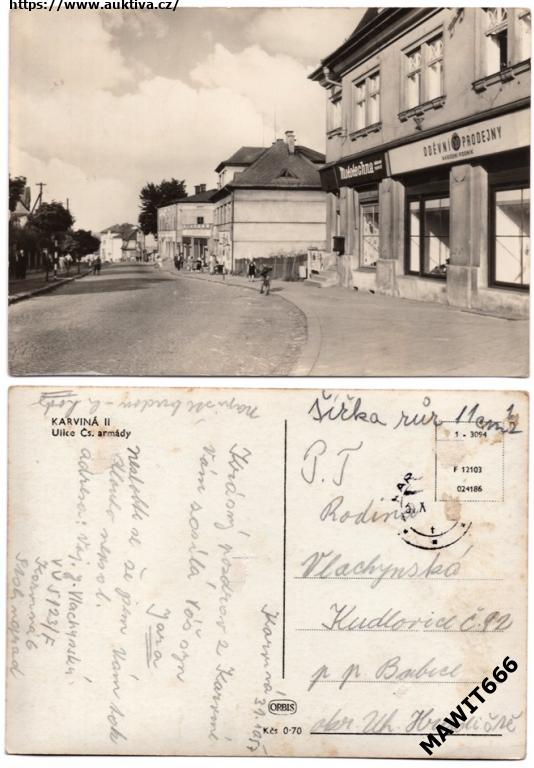 https://www.auktiva.cz/
Mototechna
ODĚVNÍ PRODEJNY
KARVINÁ II
Ulice Čs. armády
Karviná
31. 1957
Krásný pozdrav z Karviné
Vám posílá Váš syn
Jara
že jsem Vám tak
dlouho nepsal.
adresa: Voj. J. Vlachynský
VÚ 5123/F
Karviná 6
Šířka rúr 11 cm 1/2
1 - 3094
F 12103
024186
P.T
Rodina
Vlachynská
Kudlovice č. 92
p p. Babice
okr. Uh. Hradiště
ORBIS
Kčs 0·70
MAWIT666